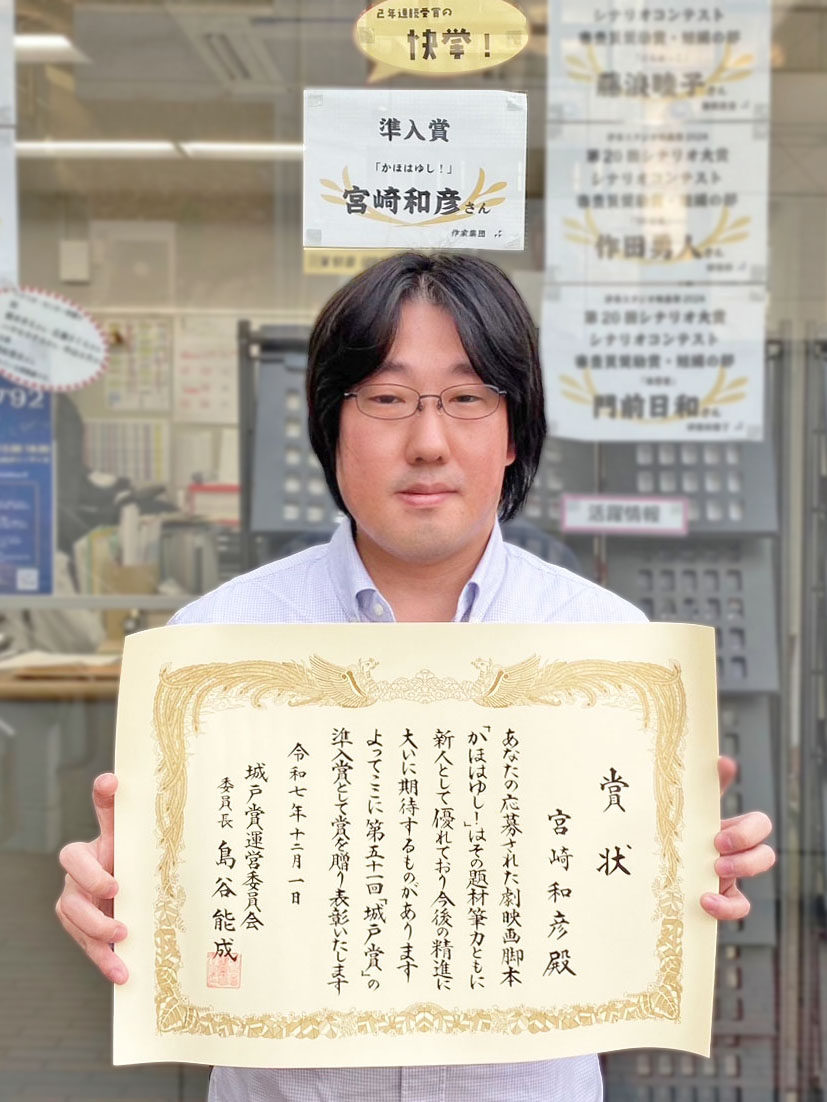 2年連続受賞の
快挙!
準入賞
「かほはゆし!」
宮崎和彦さん
作家集団
シナリオコンテスト
藤浪睦子さん
第20回シナリオ大賞
シナリオコンテスト
作田勇人さん
第20回シナリオ大賞
シナリオコンテスト
門前日和さん
活躍情報
賞状
宮崎和彦殿
あなたの応募された劇映画脚本
「かほはゆし!」はその題材筆力ともに
新人として優れており今後の精進に
大いに期待するものがあります
よってここに第五十一回「城戸賞」の
準入賞として賞を贈り表彰いたします
令和七年十二月一日
城戸賞運営委員会
委員長 島谷能成